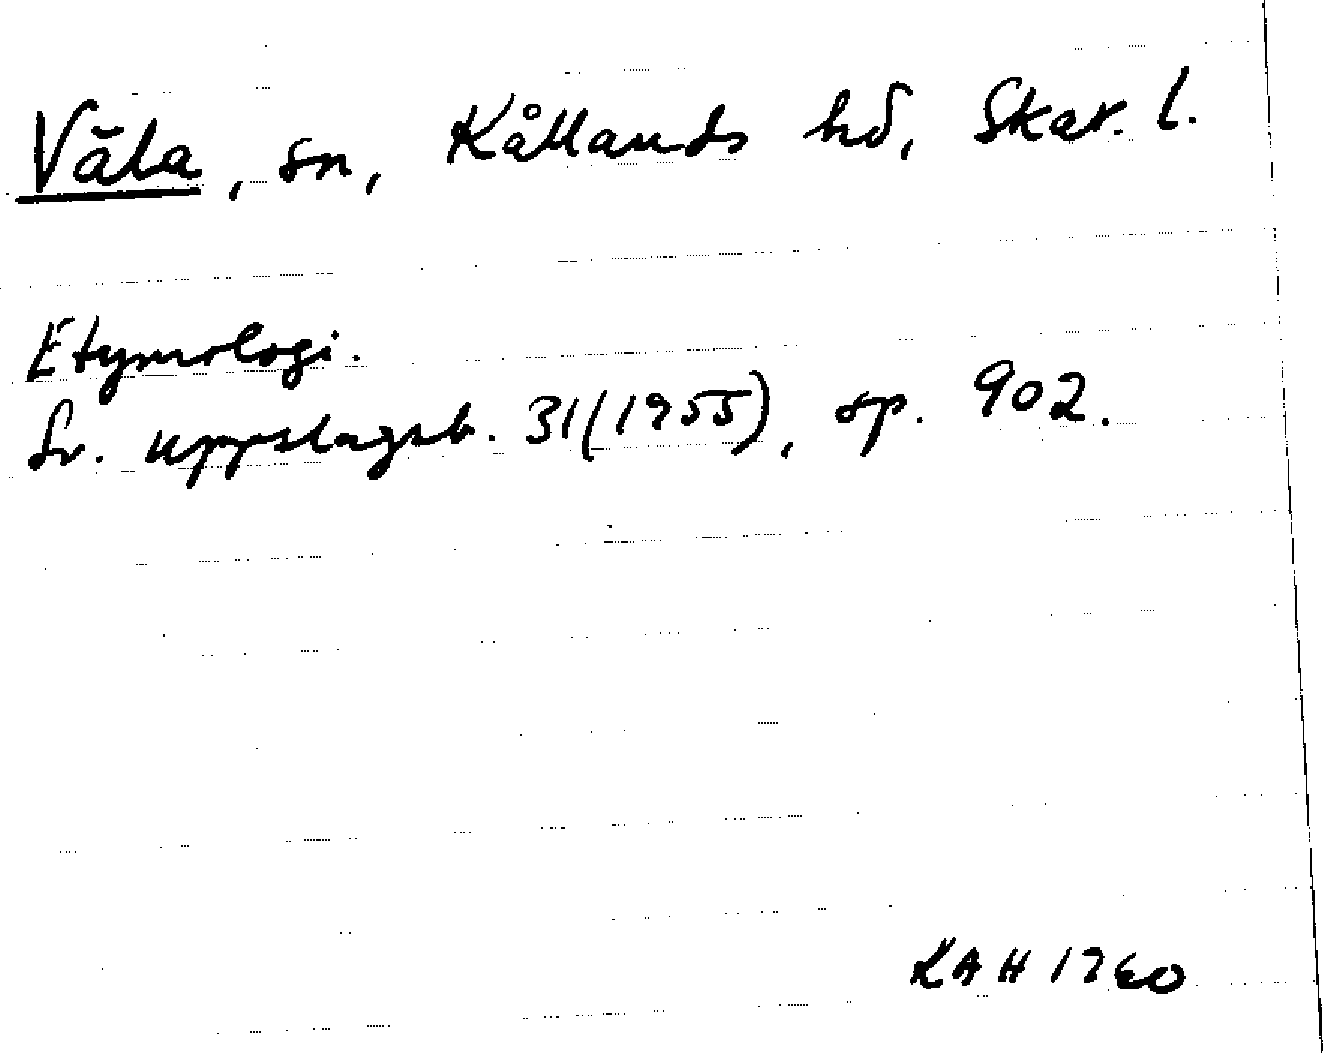 Väla, sn, Kållands hd, Skar. l.
Etymologi.
Sv. uppslagsb. 31 (1955), sp. 902.
KAH 1960